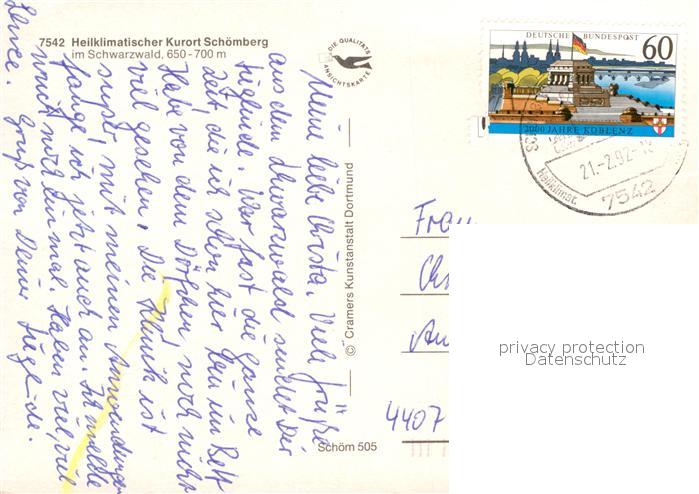 7542 Heilklimatischer Kurort Schömberg
im Schwarzwald, 650-700 m
DIE QUALITÄTS
ANSICHTSKARTE
DEUTSCHE BUNDESPOST
60
2000 JAHRE KOBLENZ
21.-2.92.-1
Heilklimat.
7542
Meine liebe Christa. Viele Grüße
aus dem Schwarzwald sendet Dir
Sieglinde. War fast die ganze
Zeit, die ich schon hier bin im Bett
Habe von dem Dörfchen noch nicht
viel gesehen. Die Klinik ist
super mit meinen Anwendungen
fange ich jetzt auch an. Ich melde
mich noch einmal. Haben viel, viel
Gruß von Deine Sieglinde.
© Cramers Kunstanstalt Dortmund
Schöm 505
Frau
Ch
An
4407
privacy protection
Datenschutz